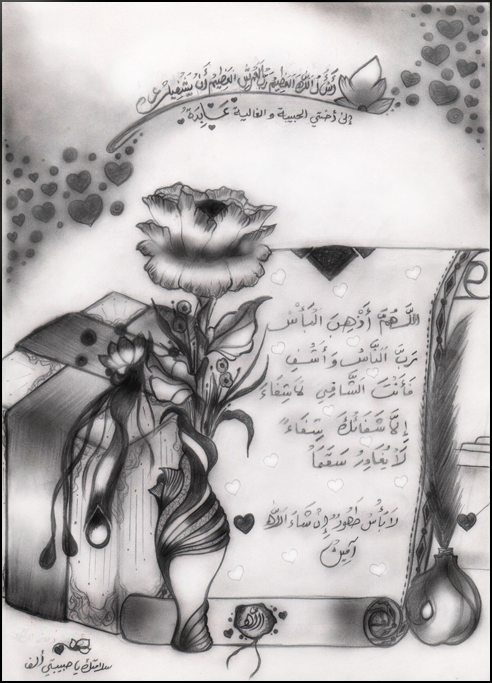 أسأل الله العظيم رب العرش العظيم أن يشفيك
إلى أختي الحبيبة و الغالية عابدة
اللهم أذهب البأس
رب الناس و أشفِ
فأنت الشافي لا شفاء
إلا شفائك شفاءً
لا يغادر سقما
لا بأس طهور إن شاء الله
آمين
سلامتك يا حبيبتي ألف